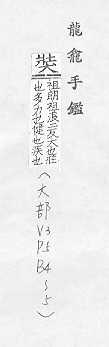 龍龕手鑑
奘
祖朗徂浪二反大也壯
也多力也健也疾也
(大部V3P5B4~5)